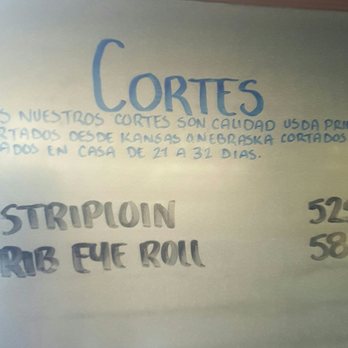 CORTES
S NUESTROS CORTES SON CALIDAD USDA PRI
RTADOS DESDE KANSAS O NEBRASKA CORTADOS
ADOS EN CASA DE 21 A 32 DIAS.
STRIPLOIN 52
RIB EYE ROLL 58